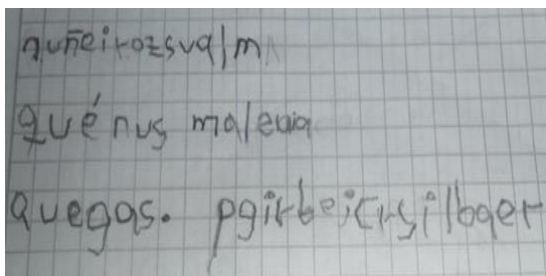 quñeirozsvalm
quénus maleuia
quegas. pgirbeicrsilbger